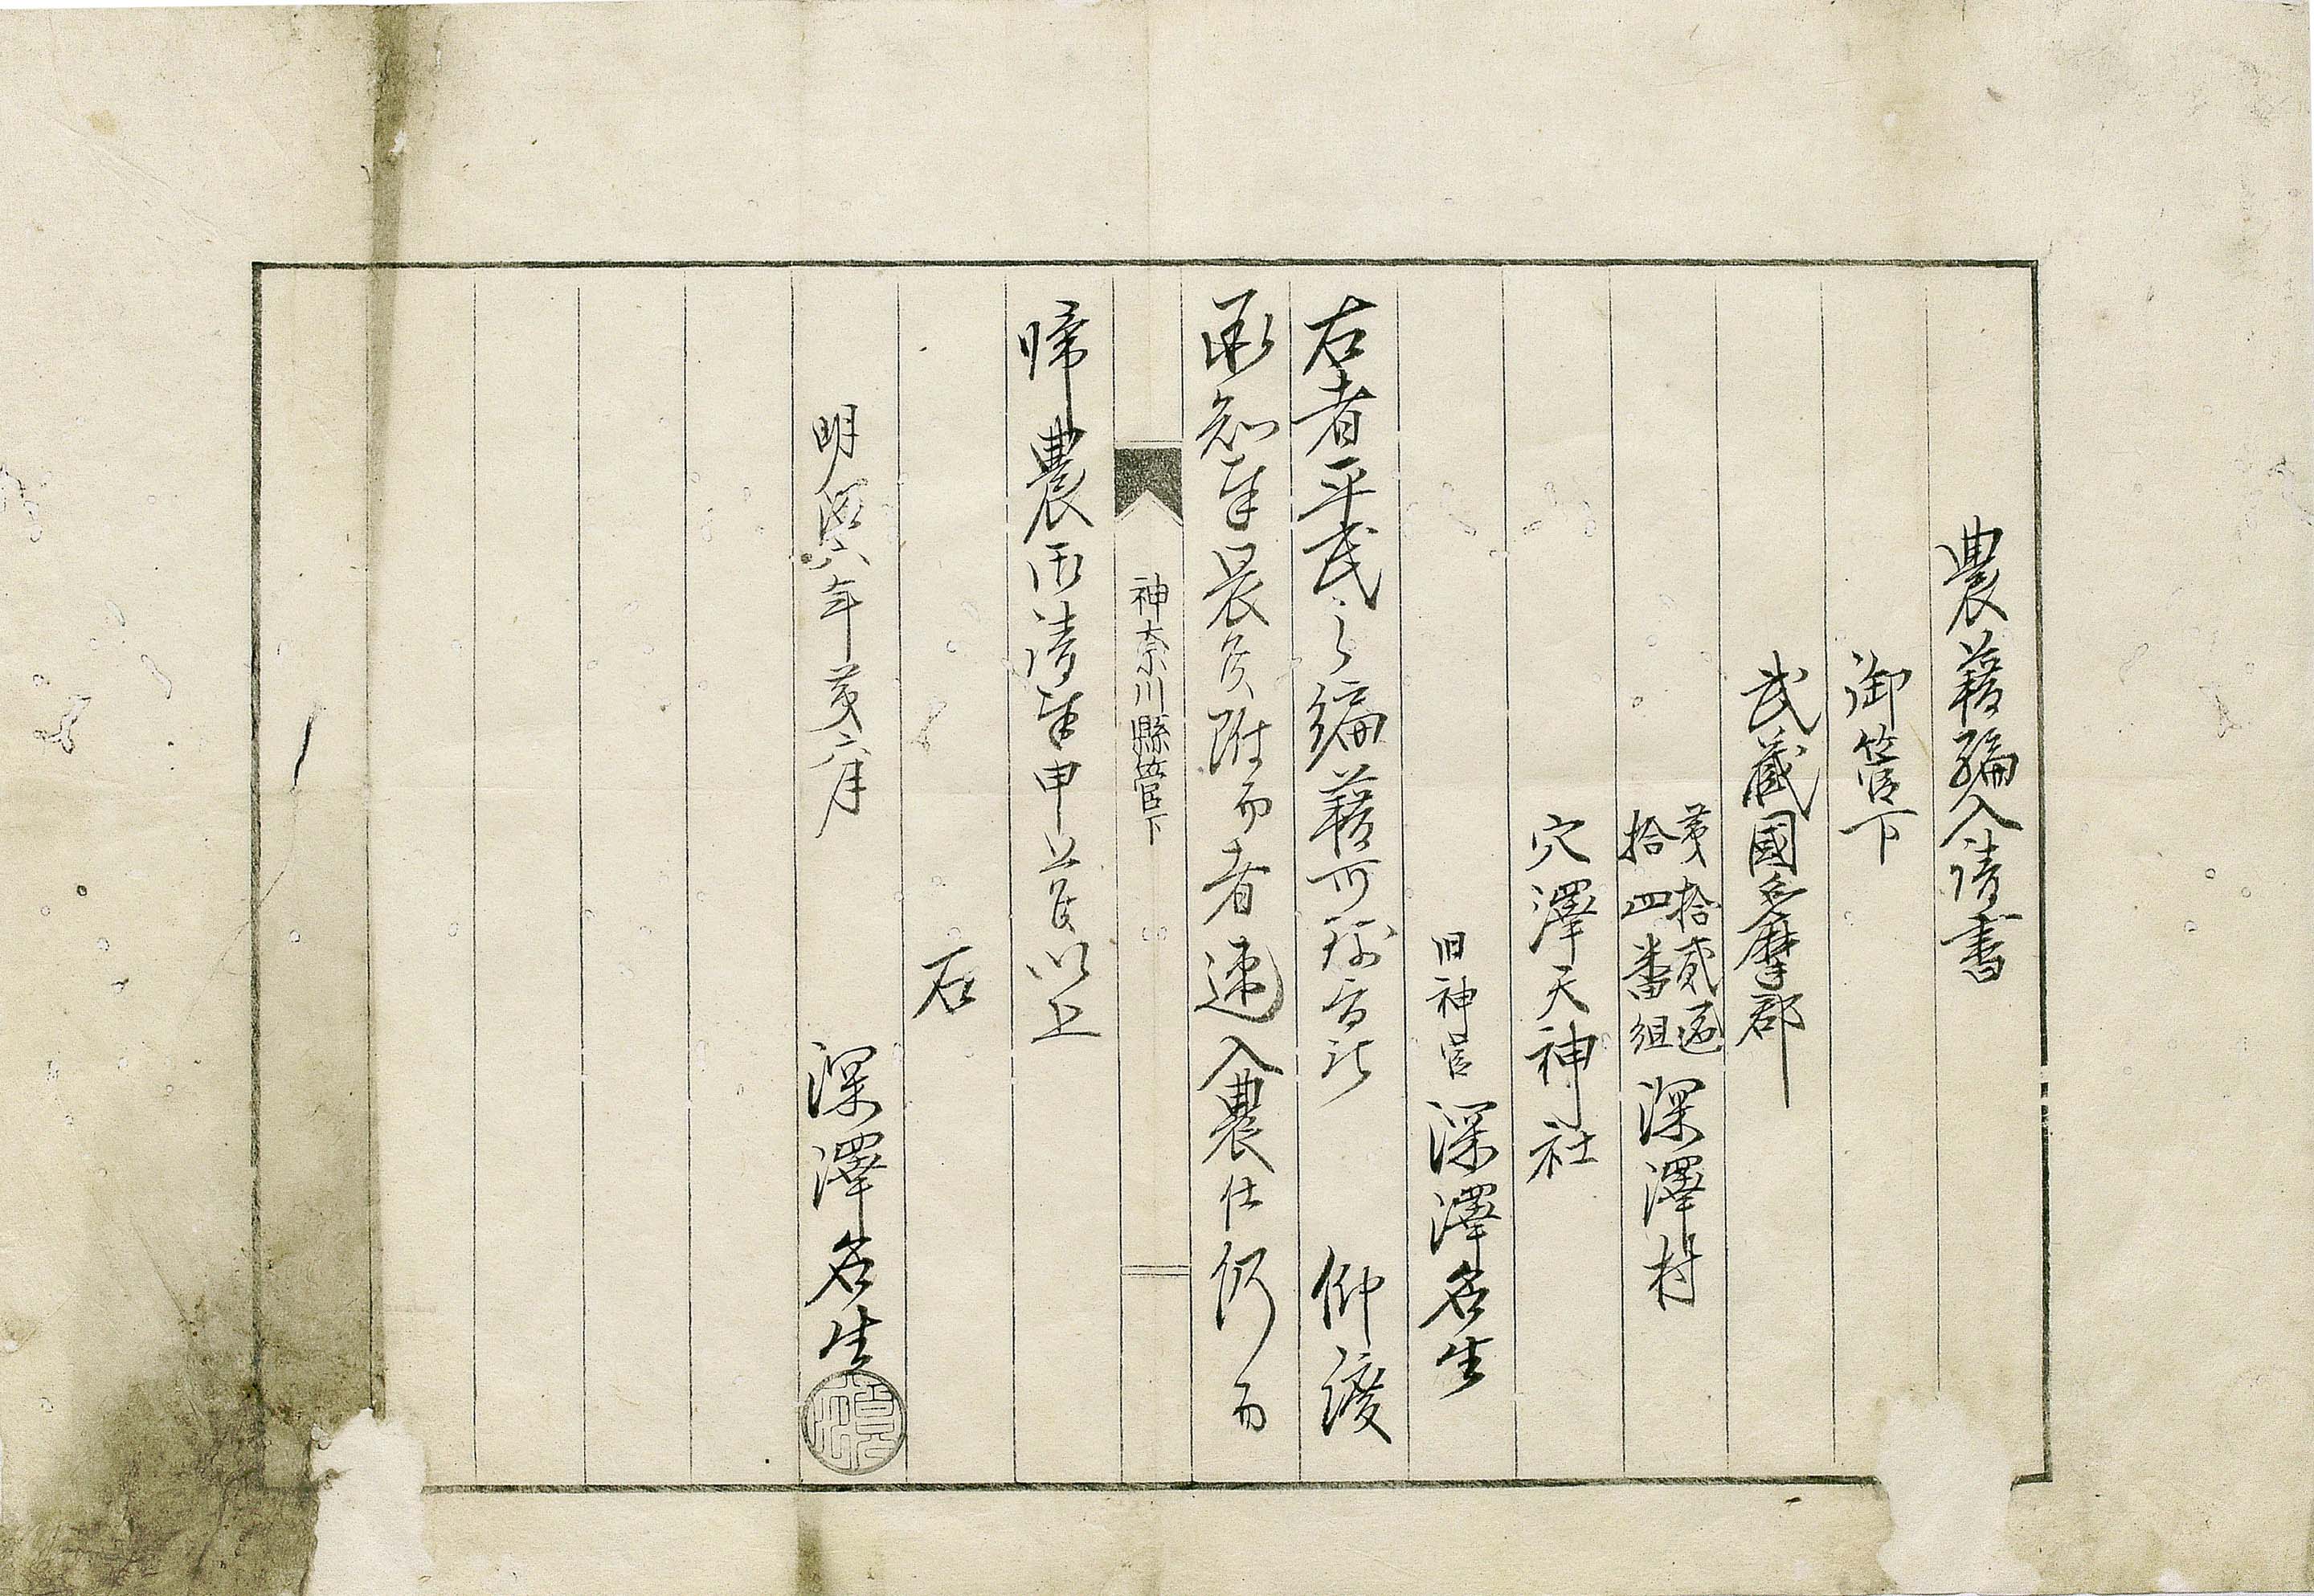 農籍編入請書
御管下
武蔵國多摩郡
第拾貳區
拾四番組
深澤村
穴澤天神社
旧神官 深澤名生
右者平民之編籍可致旨被 仰渡
承知奉畏候附而者速入農仕仍而
神奈川縣管下
帰農御請奉申上候以上
右
明治六年第六月
深澤名生